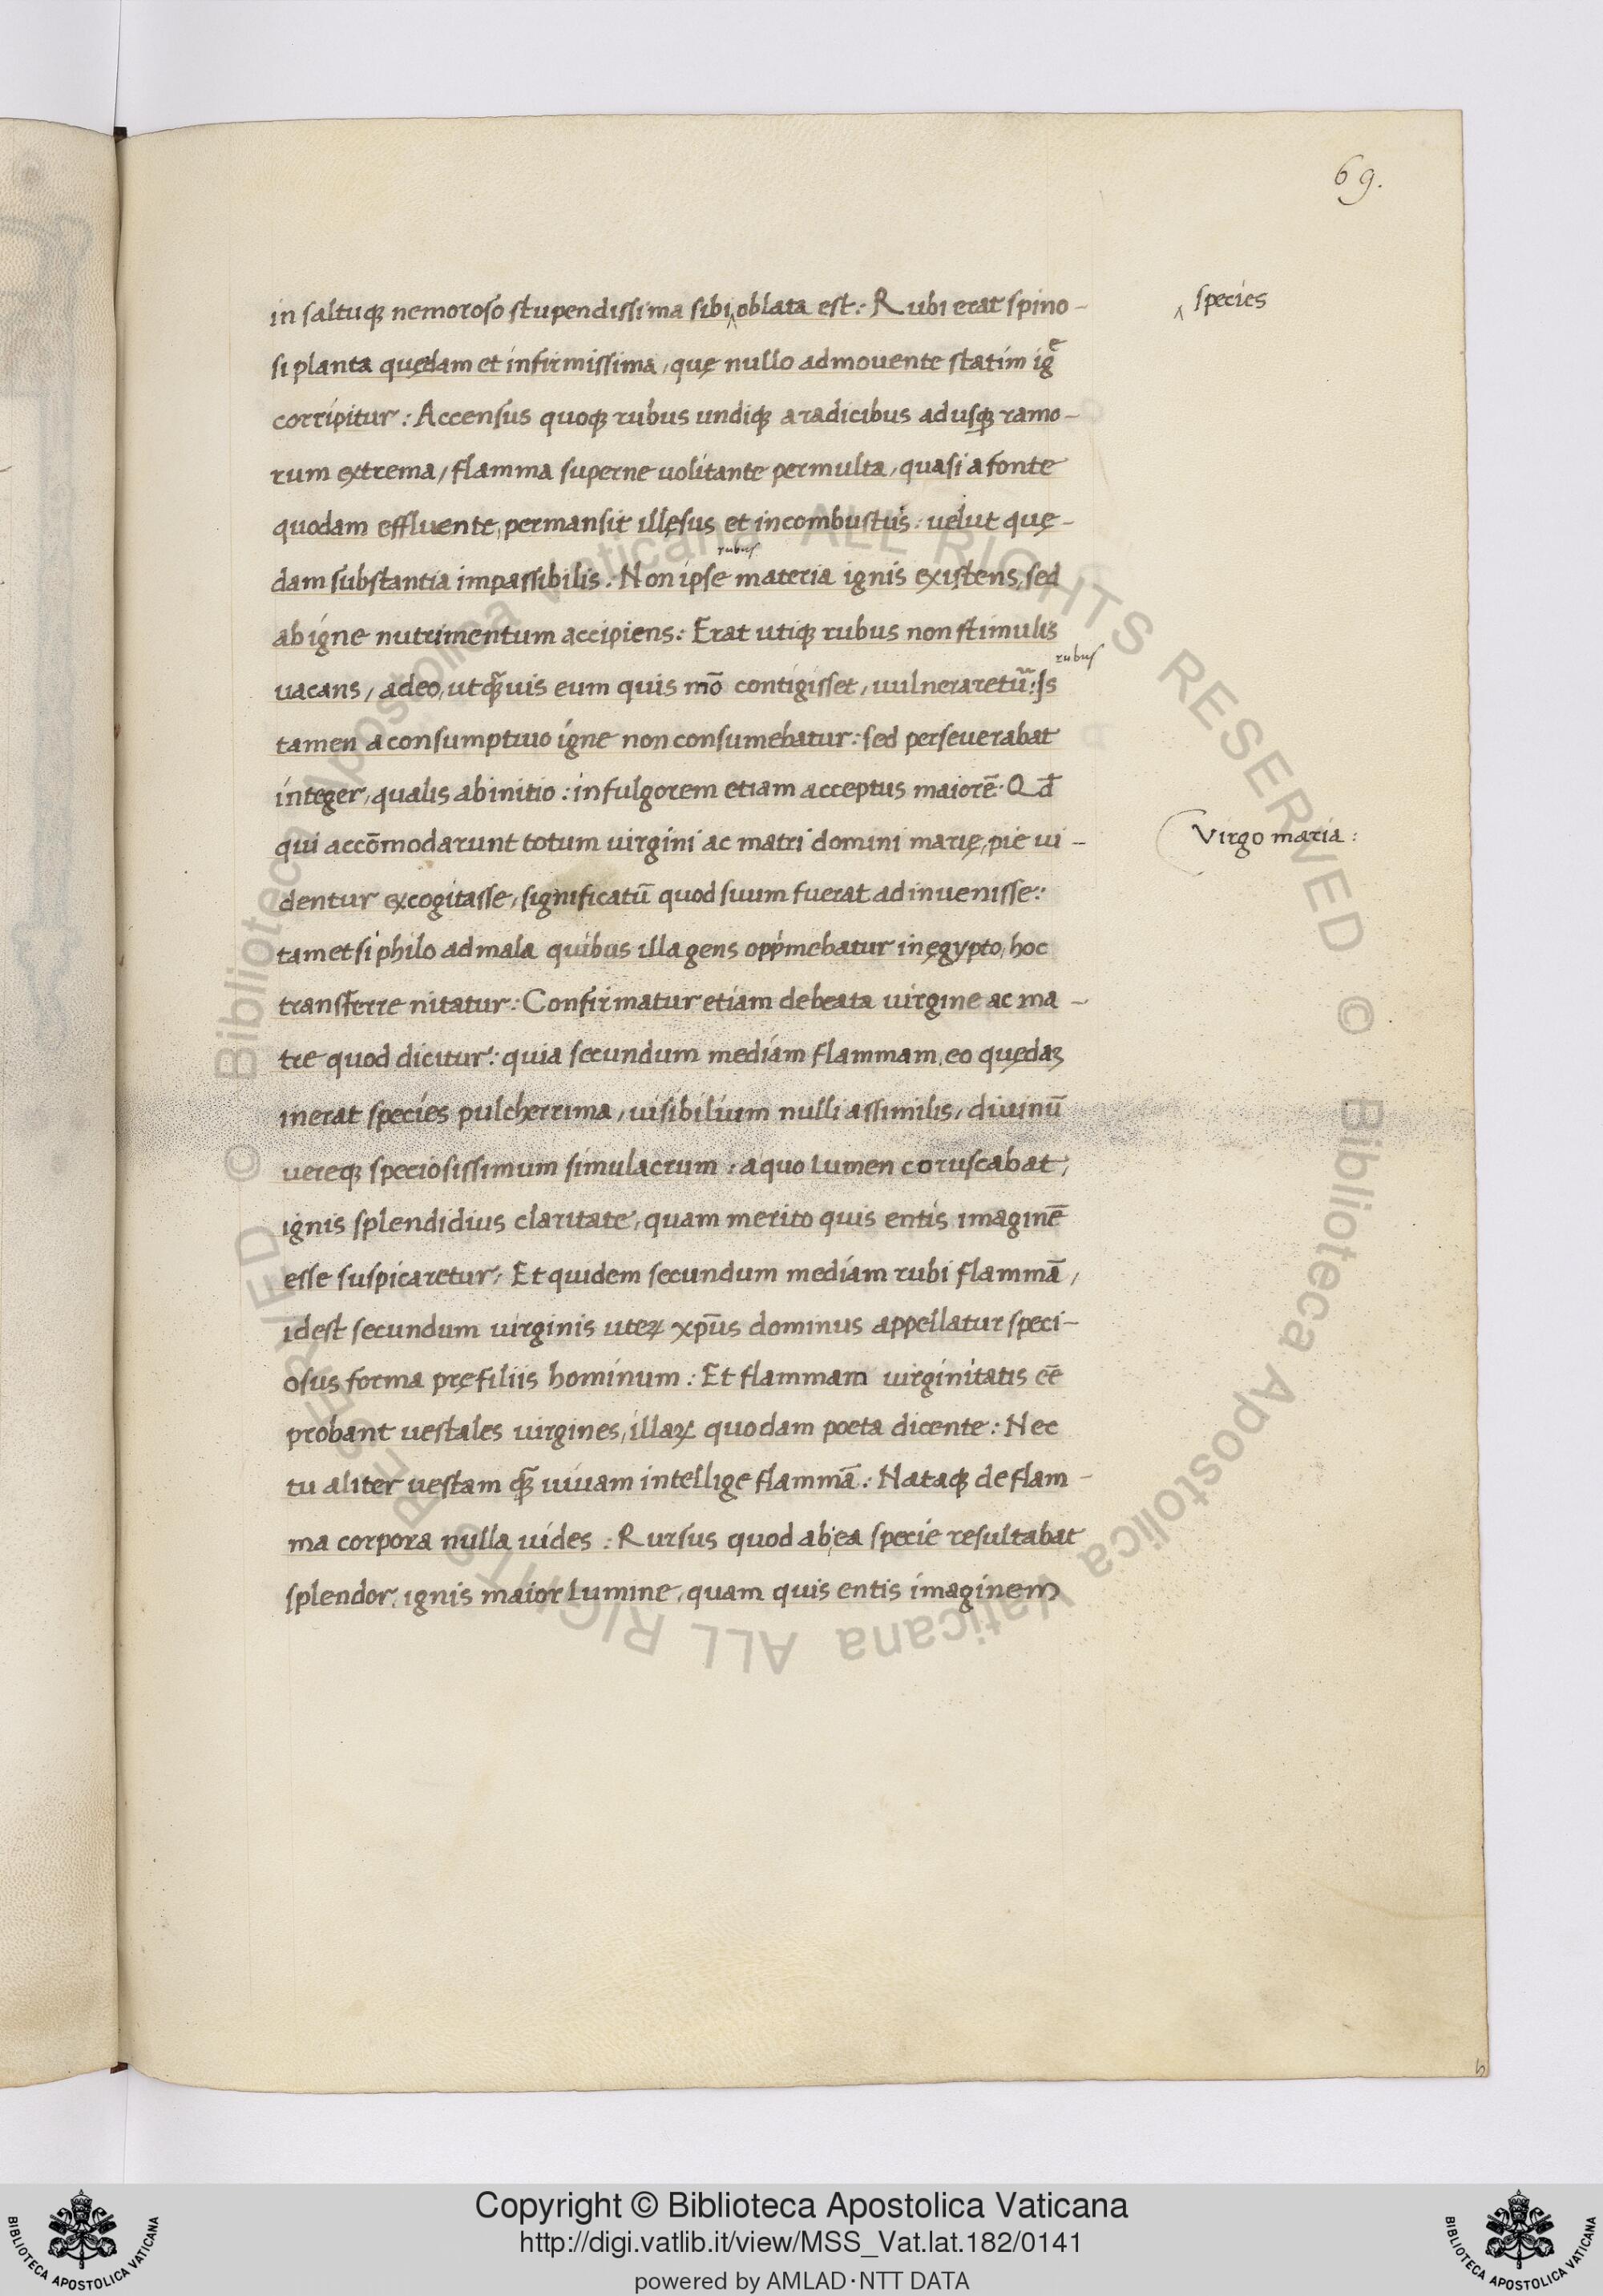 69.
in saltuqꝫ nemoroso stupendissima sibi ‸ oblata est: Rubi erat spino-
‸ species
si planta quędam et infirmissima, quę nullo admouente statim igē
corripitur: Accensus quoqꝫ rubus undiqꝫ a radicibus ad usqꝫ ramo-
rum extrema, flamma superne uolitante permulta, quasi a fonte
quodam effluente, permansit illęsus et incombustus: uelut quę-
rubus
dam substantia impassibilis: Non ipse materia ignis existens, sed
ab igne nutrimentum accipiens: Erat utiqꝫ rubus non stimulis
rubus
uacans, adeo, ut qꝫ̃uis eum quis mō contigisset, uulneraretur̃: Is
tamen a consumptiuo igne non consumebatur: sed perseuerabat
integer, qualis ab initio: in fulgorem etiam acceptus maiorē. Qd̄
qui accōmodarunt totum uirgini ac matri domini marię, pie ui-
Virgo maria:
dentur excogitasse, significatū quod suum fuerat adinuenisse:
tametsi philo ad mala quibus illa gens opp̓mebatur in ęgypto, hoc
transferre nitatur: Confirmatur etiam de beata uirgine ac ma-
tre quod dicitur: quia secundum mediam flammam, eo quędaꝫ
inerat species pulcherrima, uisibilium nulli assimilis, diuinū
uereqꝫ speciosissimum simulacrum: a quo lumen coruscabat,
ignis splendidius claritate, quam merito quis entis imaginē
esse suspicaretur, Et quidem secundum mediam rubi flammā,
idest secundum uirginis uteꝝ xp̄us dominus appellatur speci-
osus forma prę filiis hominum: Et flammam uirginitatis eē
probant uestales uirgines, illaꝝ quodam poeta dicente: Nec
tu aliter uestam qꝫ̃ uiuam intellige flammā: Nataqꝫ de flam-
ma corpora nulla uides: Rursus quod ab ea specie resultabat
splendor, ignis maior lumine, quam quis entis imaginem
h
Copyright © Biblioteca Apostolica Vaticana
http://digi.vatlib.it/view/MSS_Vat.lat.182/0141
powered by AMLAD·NTT DATA
BIBLIOTECA APOSTOLICA VATICANA
BIBLIOTECA APOSTOLICA VATICANA
© Biblioteca Apostolica Vaticana ALL RIGHTS RESERVED © Biblioteca Apostolica Vaticana ALL RIGHTS RESERVED